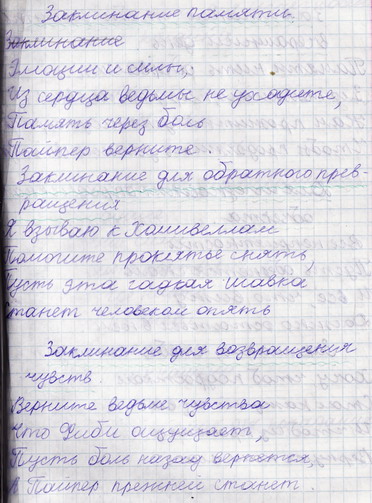 Заклинание памяти.
Заклинание
Эмоции и силы,
Из сердца ведьмы не уходите,
Память через боль
Пайпер верните.
Заклинание для обратного прев-
ращения
Я взываю к Холивеллам
Помогите проклятье снять,
Пусть эта гадкая шавка
Станет человеком опять
Заклинание для возвращения
чувств
Верните ведьме чувства
Что Фиби ощущает,
Пусть боль назад вернется,
А Пайпер прежней станет.